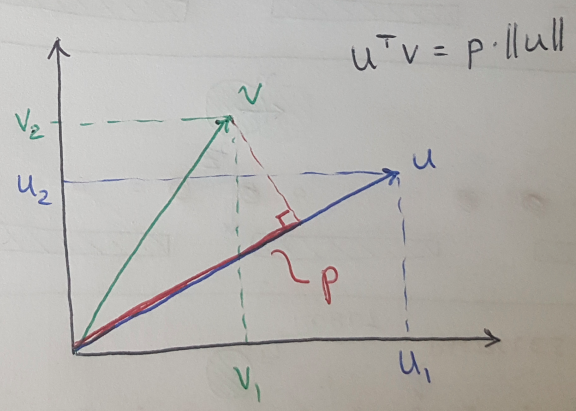 uᵀv = p·||u||
v
v₂
u
u₂
p
v₁
u₁